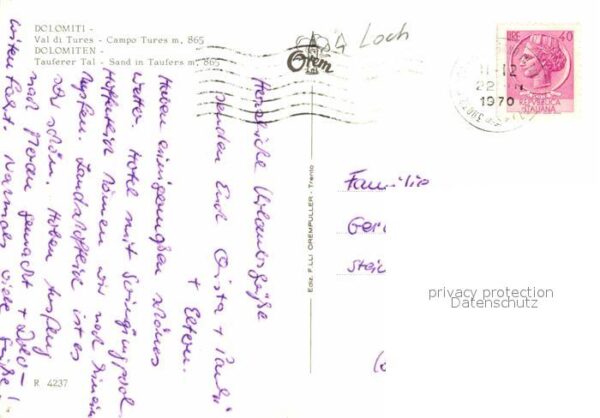 DOLOMITI -
Val di Tures - Campo Tures m. 865
DOLOMITEN -
Tauferer Tal - Sand in Taufers m. 865
Orem
Loch
LIRE 40
REPVBBLICA
ITALIANA
11-12
22
1970
Herzliche Urlaubsgrüße
senden Euch Christa + Pauli
+ Eltern.
Haben einigermaßen schönes
Wetter. Hotel mit Swimmingpool.
Hoffentlich können wir noch hinein
hupfen. Landschaftlich ist es
sehr schön. Haben Ausflug
nach Meran gemacht +
Nochmals viele Grüße!
Ediz. F.LLI OREMPULLER - Trento
Familie
Ger
Stei
privacy protection
Datenschutz
R 4237